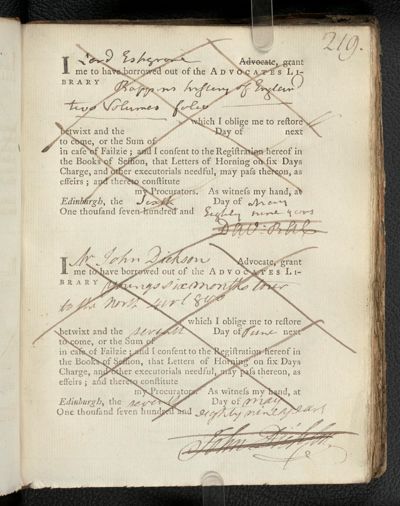 219.
I Lord Eskgrove Advocate, grant
me to have borrowed out of the ADVOCATES LI-
BRARY Rappins history of England
two Volumes folio
which I oblige me to reſtore
betwixt and the Day of next
to come, or the Sum of
in caſe of Failzie; and I conſent to the Regiſtration hereof in
the Books of Seſſion, that Letters of Horning on ſix Days
Charge, and other executorials needful, may paſs thereon, as
effeirs; and thereto conſtitute
my Procurators. As witneſs my hand, at
Edinburgh, the Sixth Day of May
One thouſand ſeven hundred and Eighty nine years
Dav: Rae
I Mr John Dickson Advocate, grant
me to have borrowed out of the ADVOCATES LI-
BRARY youngs six months tour
to the north vol
which I oblige me to reſtore
betwixt and the seventh Day of June next
to come, or the Sum of
in caſe of Failzie; and I conſent to the Regiſtration hereof in
the Books of Seſſion, that Letters of Horning on ſix Days
Charge, and other executorials needful, may paſs thereon, as
effeirs; and thereto conſtitute
my Procurators. As witneſs my hand, at
Edinburgh, the seventh Day of May
One thouſand ſeven hundred and eighty nine years
John Dickson